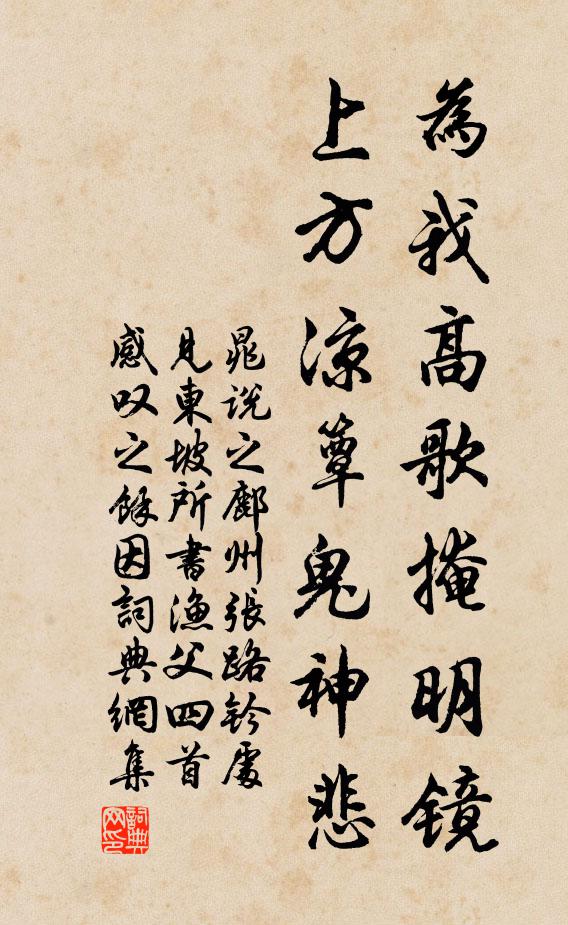 為我高歌掩明镜
上方凉簟鬼神悲
晁说之鄜州張路鈐處
見東坡所書漁父四首
感叹之餘因詞典網集
詞典
网印